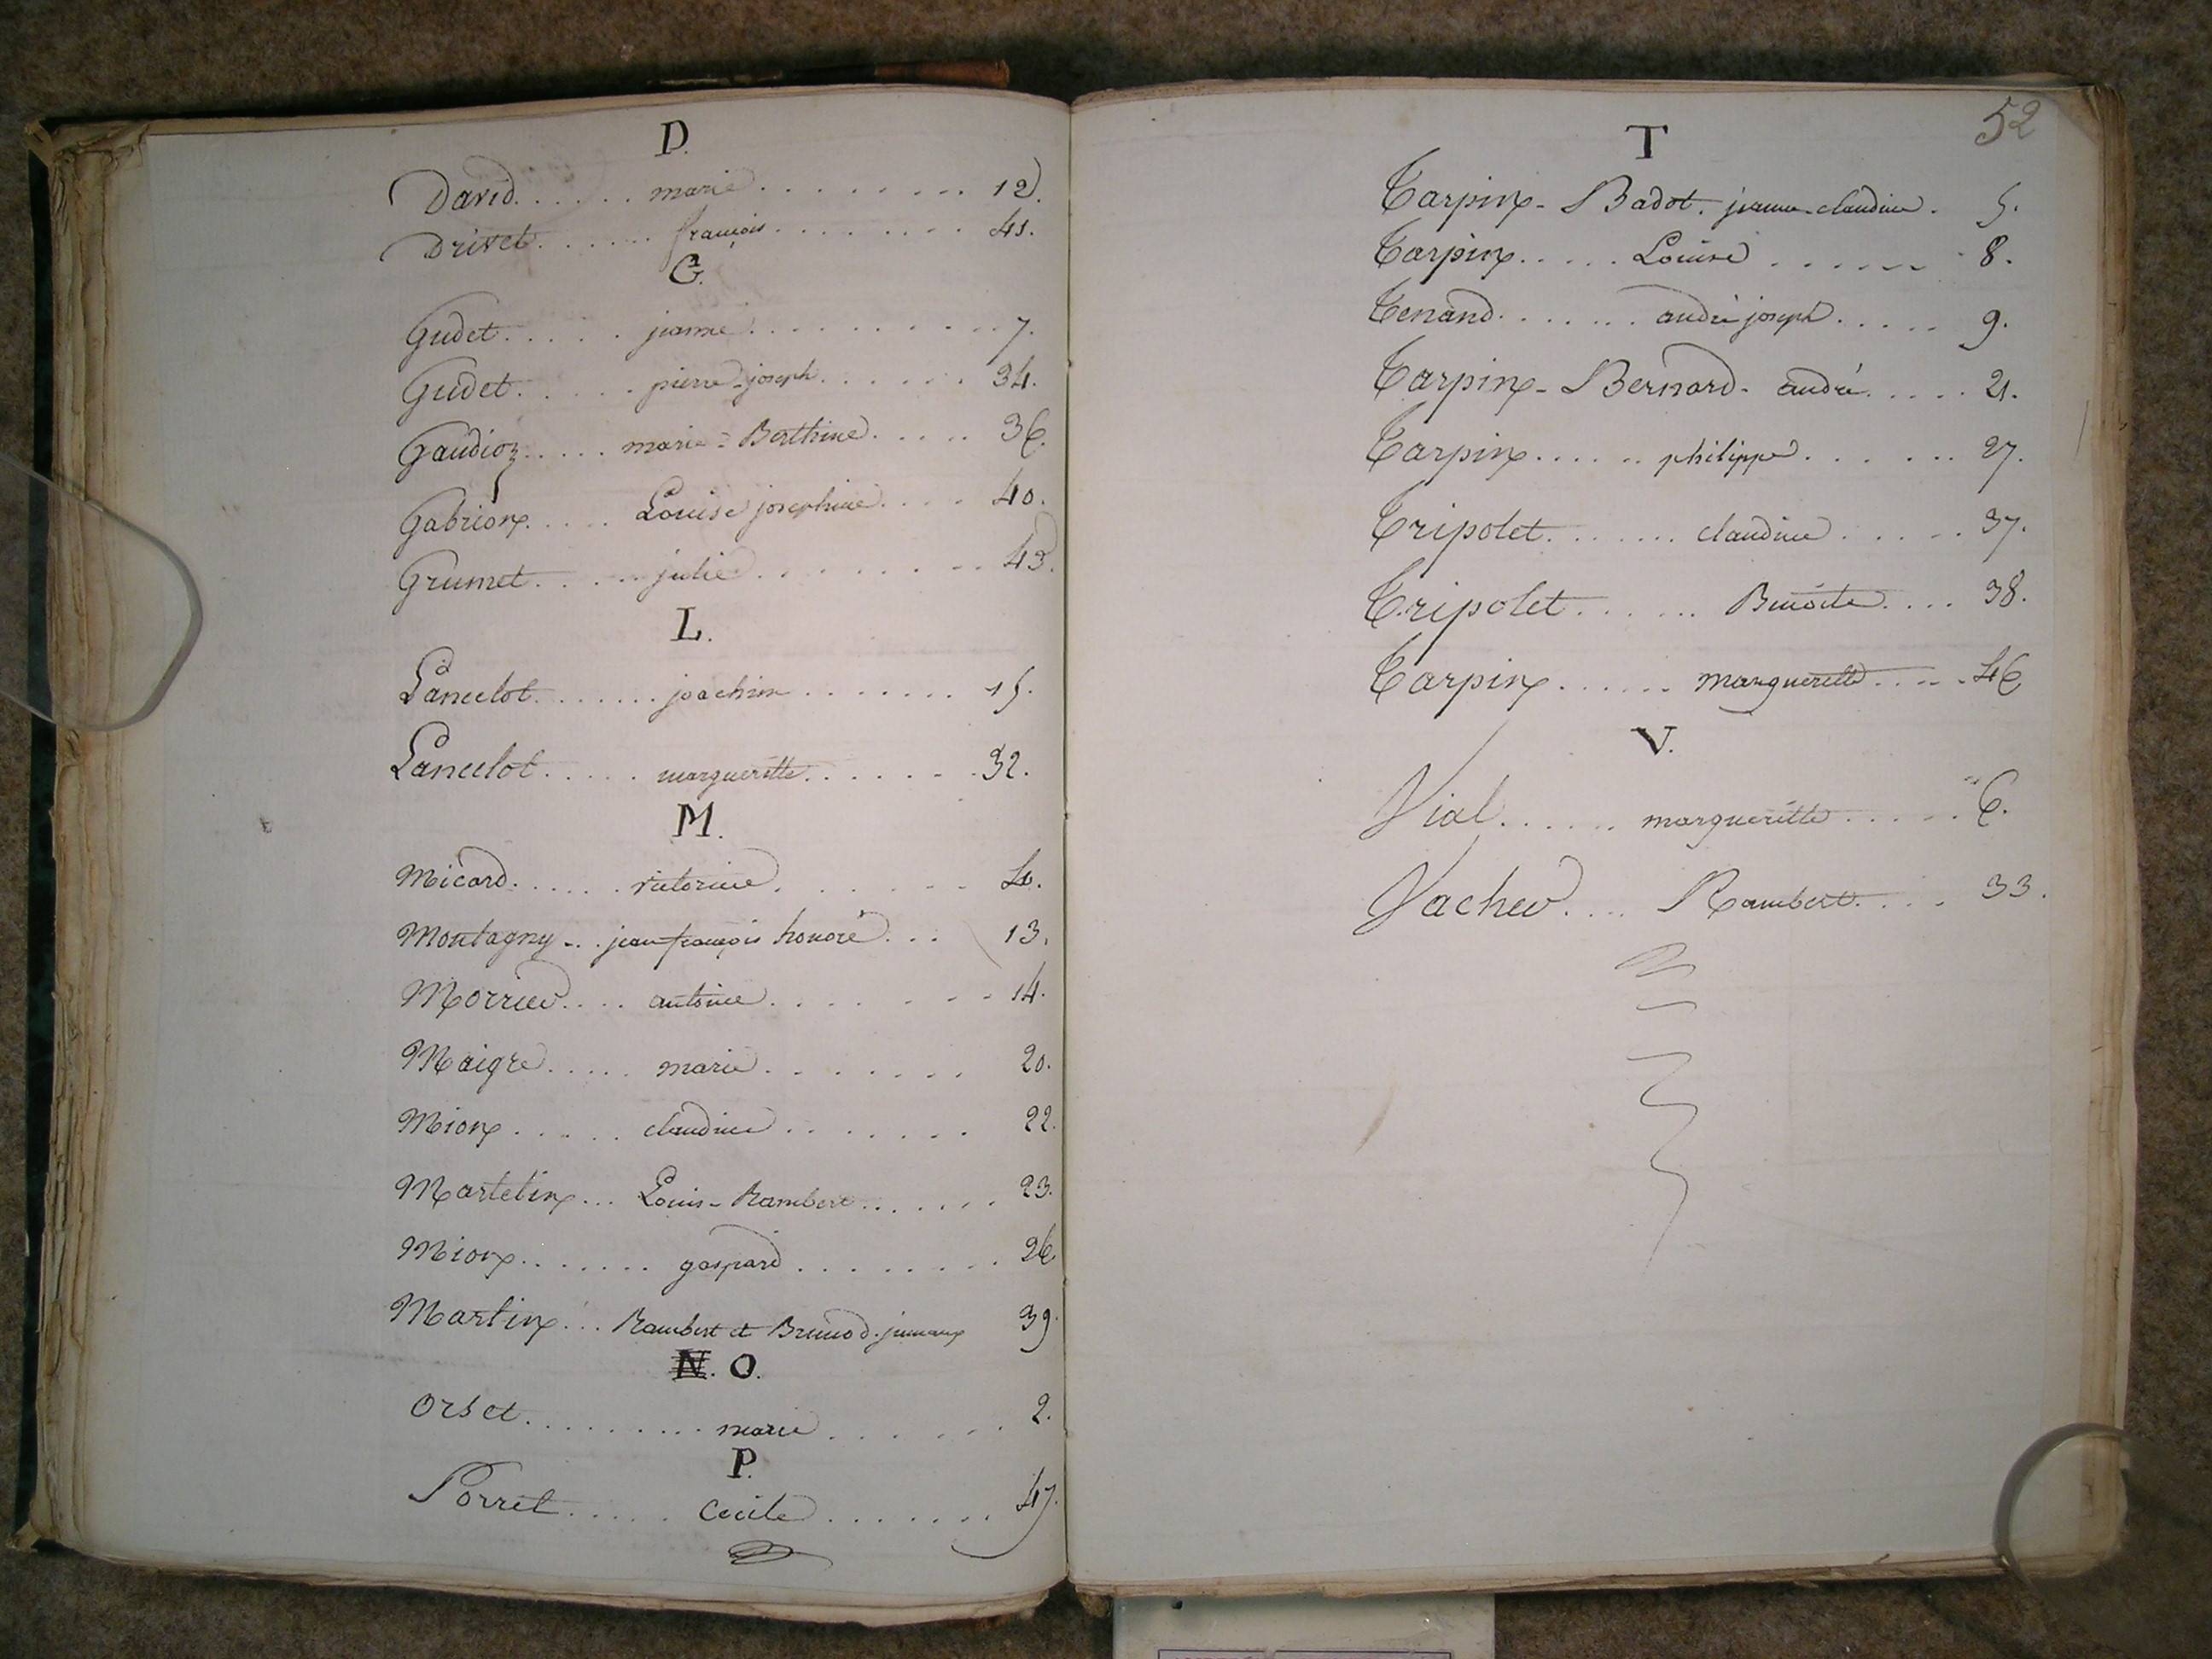 D.
David. . . . . . marie . . . . . . . . . 12.
Drivet. . . . . . françois. . . . . . . . 41.
G.
Gudet. . . . . jeanne . . . . . . . . . . 7.
Gudet. . . . . . pierre-joseph. . . . . . 34.
Gaudioz. . . . . marie-Berthine. . . . . 36.
Gabrion. . . . . Louise josephine. . . . 40.
Grumet. . . . . julie . . . . . . . . 43.
L.
Lancelot. . . . . . . joachim . . . . . . . 15.
Lancelot . . . . . margueritte. . . . . . . 32.
M.
Micard. . . . . . victorine. . . . . . . 4.
Montagny - . . jean françois honoré . . . 13.
Morrier. . . . antoine . . . . . . . . 14.
Maigre . . . . . marie . . . . . . . . 20.
Mion . . . . . claudine . . . . . . . 22.
Martelin . . . Louis-Rambert . . . . . . . 23.
Mion. . . . . . . gaspard . . . . . . . . 26.
Martin . . . Rambert et Brunod. jumeaux 39.
N. O.
Orset. . . . . . . . . marie . . . . . . 2.
P.
Porret. . . . . Cecile . . . . . . . . 47.
52
T
Tarpin - Badot. jeanne-claudine. 5.
Tarpin. . . . . Louise . . . . . . 8.
Tenand. . . . . . . andré joseph. . . . . 9.
Tarpin - Bernard - andré. . . . . 21.
Tarpin. . . . . . philippe. . . . . . . 27.
Tripolet. . . . . . . claudine . . . . . 37.
Tripolet. . . . . . Benoite. . . . 38.
Tarpin . . . . . . margueritte. . . . . 46
V.
Vial. . . . . . margueritte . . . . . 6.
Vacher. . . . Rambert. . . . . 33.